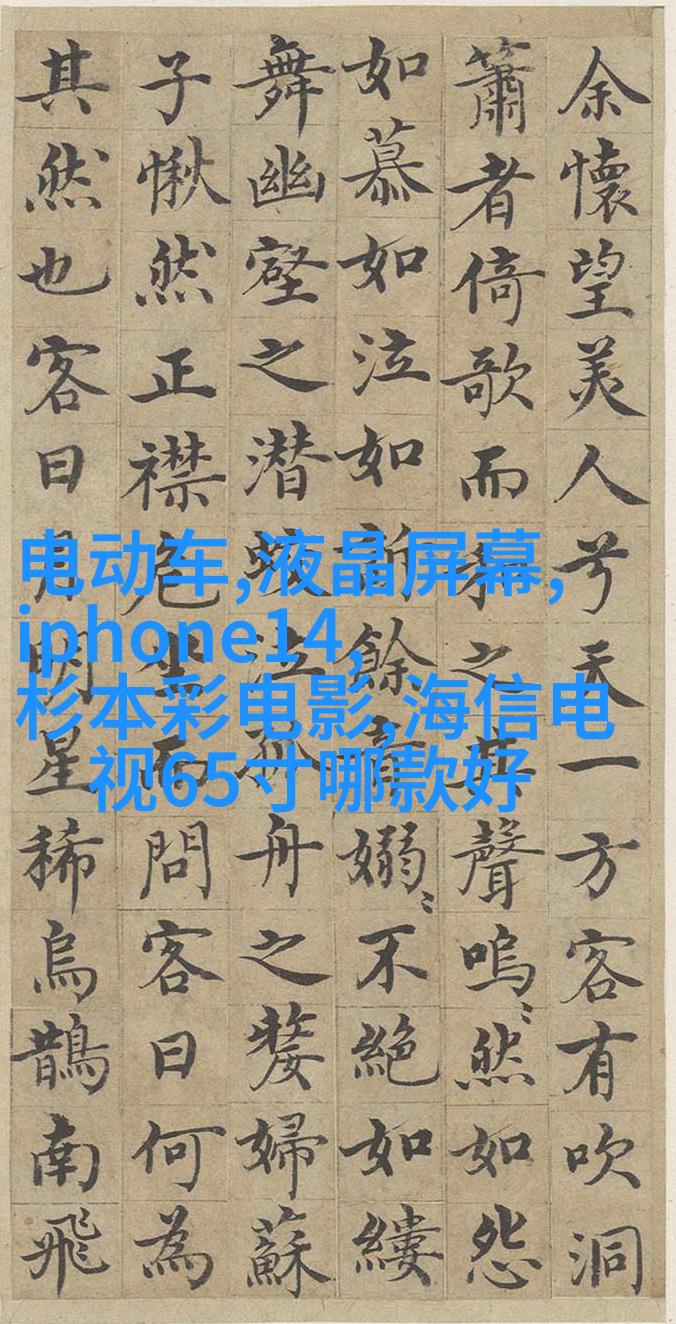 余懷望美人兮天一方客有吹洞
簫者倚歌而和之其聲嗚〻然如怨
如慕如泣如訴餘音嫋〻不絕如縷
舞幽壑之潜蛟泣孤舟之嫠婦蘇
子愀然正襟危坐而問客曰何為
其然也客曰月明星稀烏鵲南飛
电动车,液晶屏幕,
iphone14,
杉本彩电影,海信电
视65寸哪款好